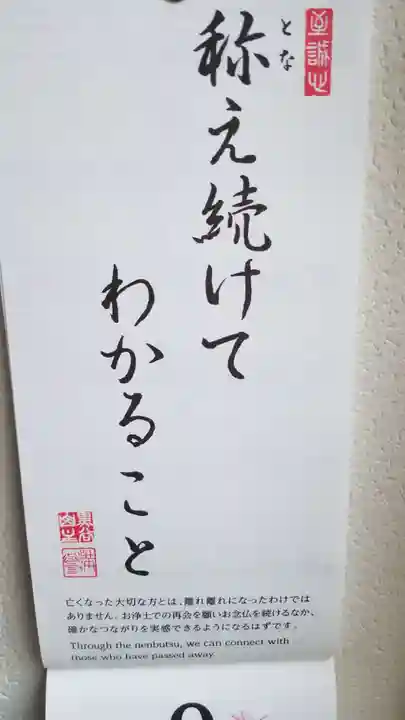 至誠心
とな
称え続けて
わかること
亡くなった大切な方とは、離れ離れになったわけでは
ありません。お浄土での再会を願いお念仏を続けるなか、
確かなつながりを実感できるようになるはずです。
Through the nenbutsu, we can connect with
those who have passed away.